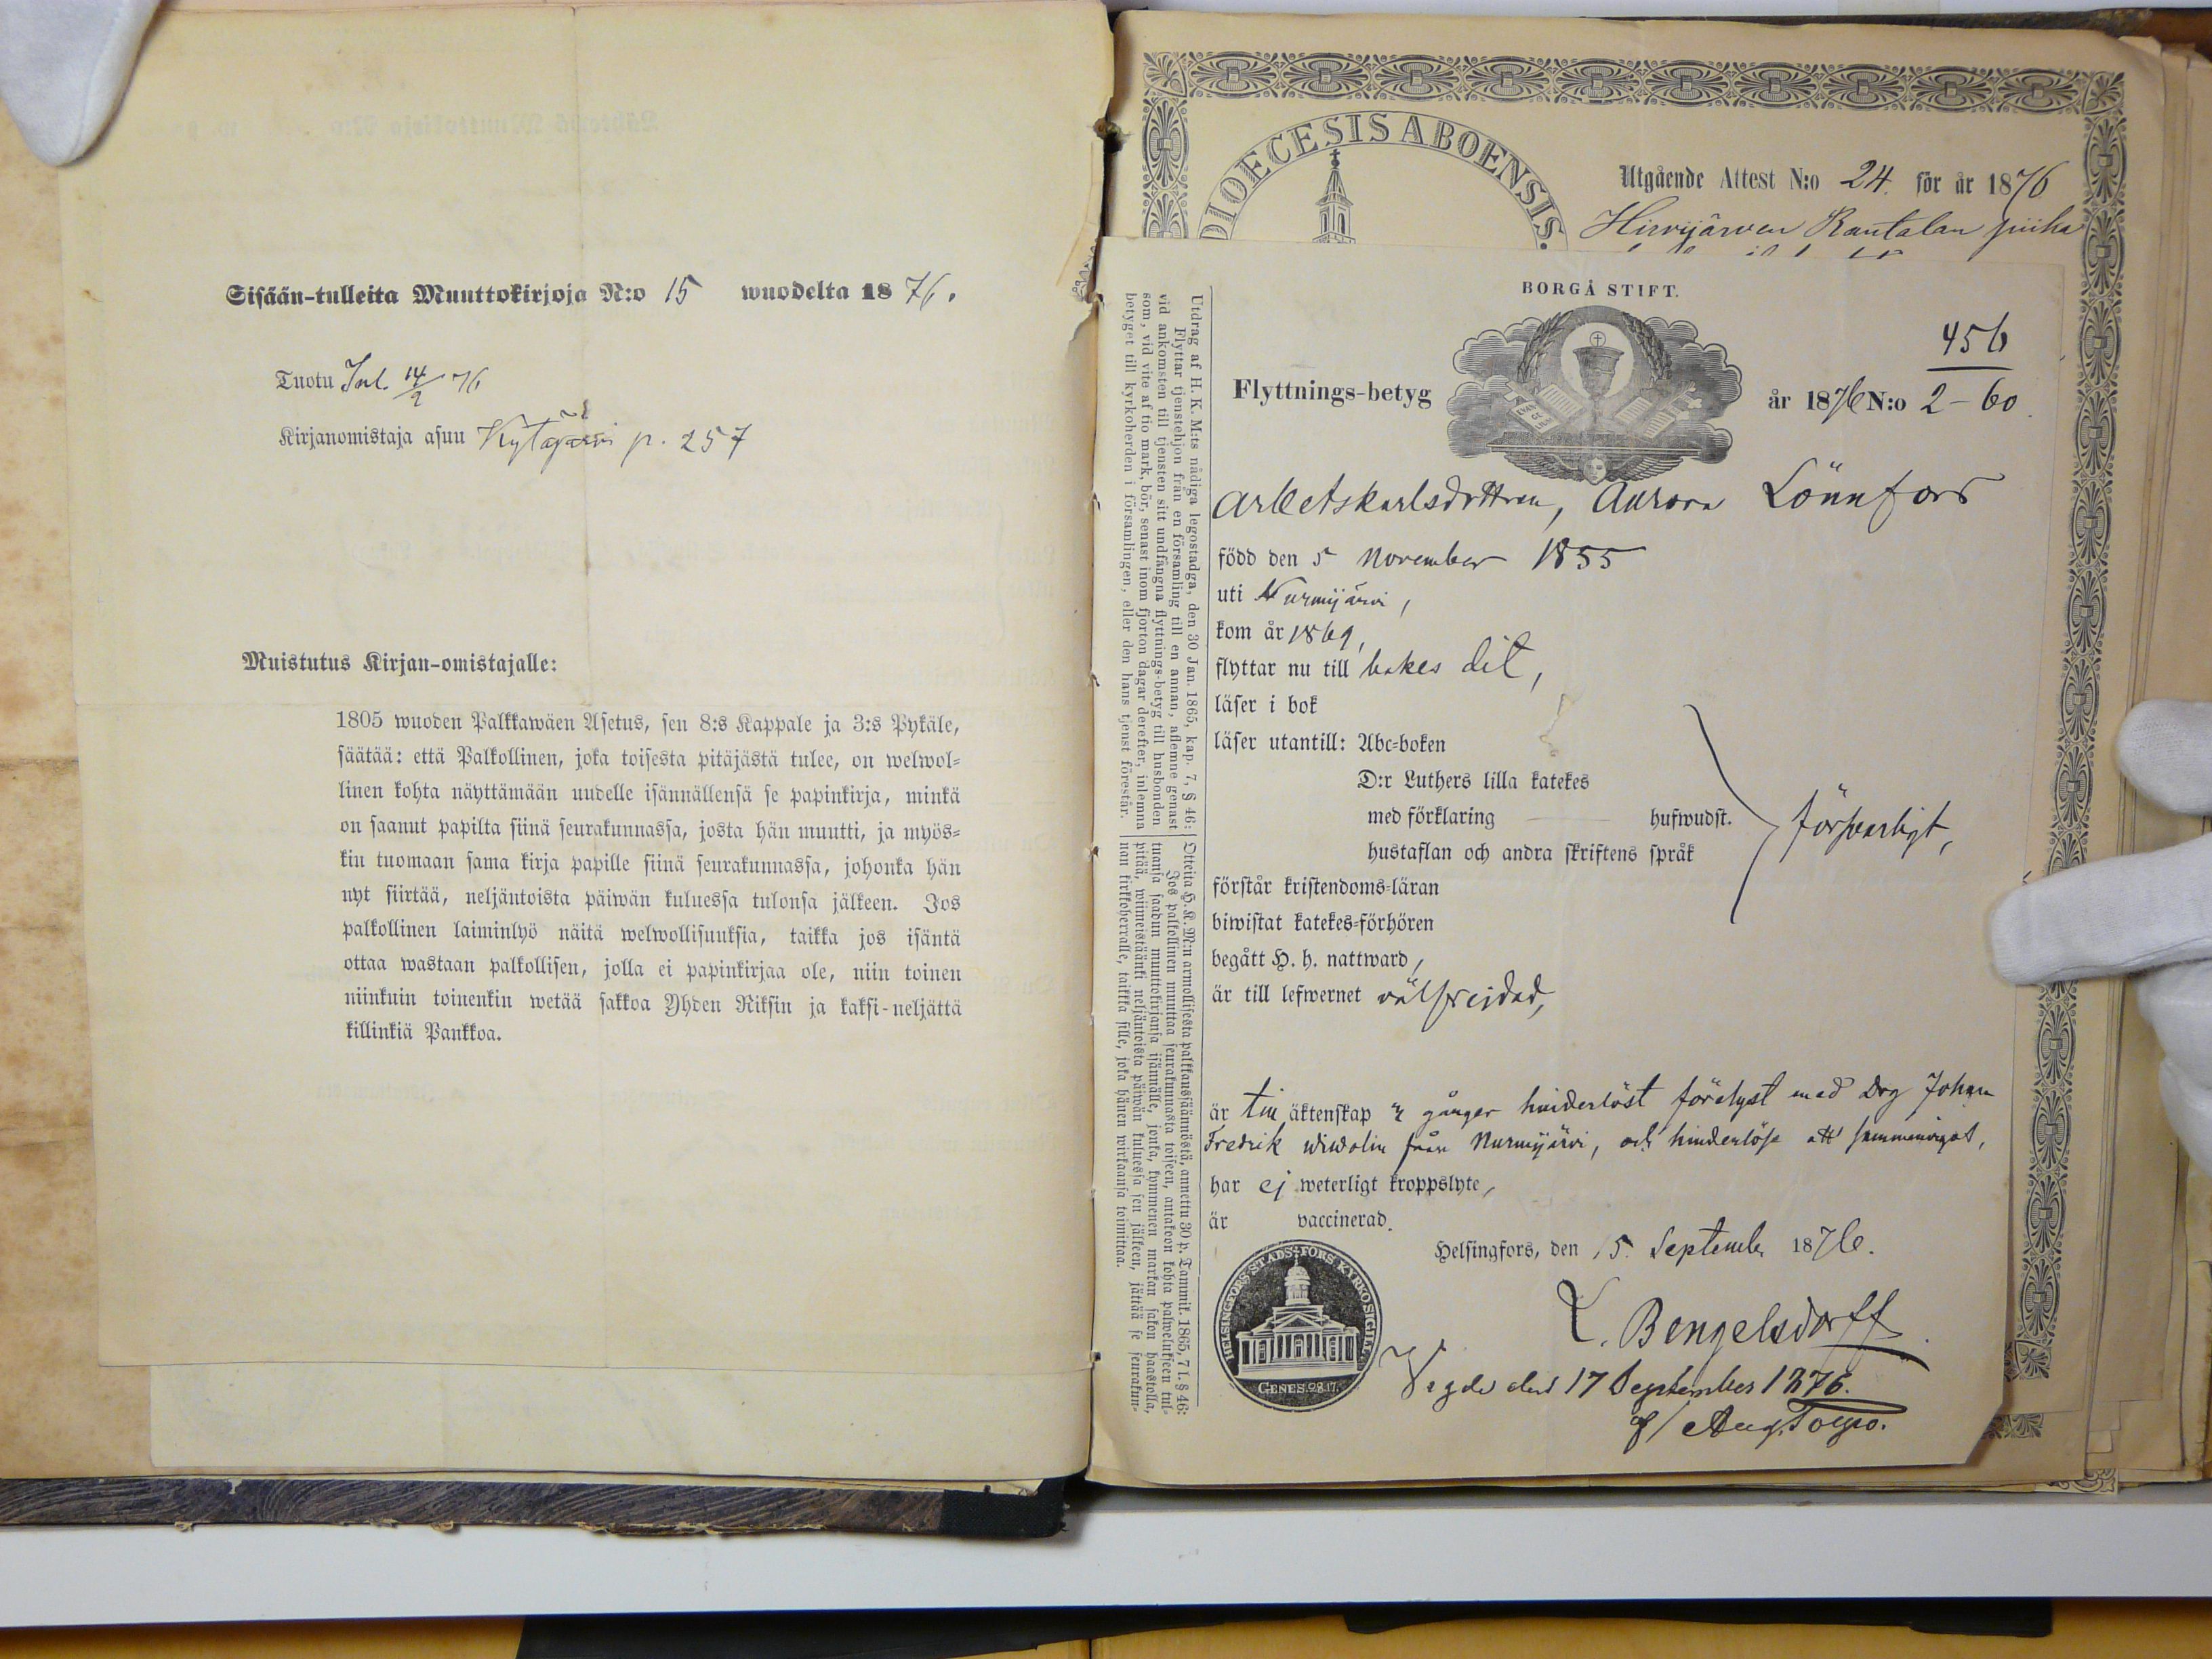 Sisään-tulleita Muuttokirjoja N:o 15 wuodelta 1876.
Tuotu Jul. 14/2 76
Kirjanomistaja asuu Kytäjärvi p. 257
Muistutus Kirjan-omistajalle:
1805 wuoden Palkkawäen Asetus, sen 8:s Kappale ja 3:s Pykäle,
säätää: että Palkollinen, joka toisesta pitäjästä tulee, on welwol-
linen kohta näyttämään uudelle isännällensä se papinkirja, minkä
on saanut papilta siinä seurakunnassa, josta hän muutti, ja myös-
kin tuomaan sama kirja papille siinä seurakunnassa, johonka hän
nyt siirtää, neljäntoista päiwän kuluessa tulonsa jälkeen. Jos
palkollinen laiminlyö näitä welwollisuuksia, taikka jos isäntä
ottaa wastaan palkollisen, jolla ei papinkirjaa ole, niin toinen
niinkuin toinenkin wetää sakkoa Yhden Riksin ja kaksi-neljättä
killinkiä Pankkoa.
DIOECESIS ABOENSIS.
Utgående Attest N:o 24. för år 1876
Hirvijärwen Rantalan piika
BORGÅ STIFT.
456
Flyttnings-betyg
år 1876 N:o 2-60.
EVAN
GE
LIUM
Arbetskarlsdottren, Aurora Lönnfors
född den 5 November 1855
uti Nurmijärvi,
kom år 1869,
flyttar nu till bakes dit,
läser i bok
läser utantill: Abc-boken
D:r Luthers lilla katekes
med förklaring hufwudst.
försvarligt,
hustaflan och andra skriftens språk
förstår kristendoms-läran
biwistat katekes-förhören
begått H. h. nattward,
är till lefwernet välfrejdad,
är till äktenskap gånger hinderlöst förelyst med Drg Johan
Fredrik Wiwolin från Nurmijärvi, och hinderlös att sammanvigas,
har ej weterligt kroppslyte,
är vaccinerad.
Helsingfors, den 15. September 1876.
HELSINGFORS STADS FÖRS KYRKO SIGILL
GENES. 28.17.
L. Bengelsdorff
Vigde den 17 September 1876.
af/ Aug.
Utdrag af H. K. M:ts nådiga legostadga, den 30 Jan. 1865, kap. 7, § 46:
Flyttar tjenstehjon från en församling till en annan, aflemne genast
vid ankomsten till tjensten sitt undfångna flyttnings-betyg till husbonden
som, vid vite af tio mark, bör, senast inom fjorton dagar derefter, inlemna
betyget till kyrkoherden i församlingen, eller den hans tjenst förestår.
Otteita H. K. M:n armollisesta palkkaussäännöstä, annettu 30 p. Tammik. 1865, 7 l. § 46:
Jos palkollinen muuttaa seurakunnasta toiseen, antakoon kohta palwelukseen tul-
tuansa saadun muuttokirjansa isännälle, jonka, kymmenen markan sakon haastolla,
pitää, wiimeistäänki neljäntoista päiwän kuluessa sen jälkeen, jättää se seurakun-
nan kirkkoherralle, taikka sille, joka hänen wirkaansa toimittaa.